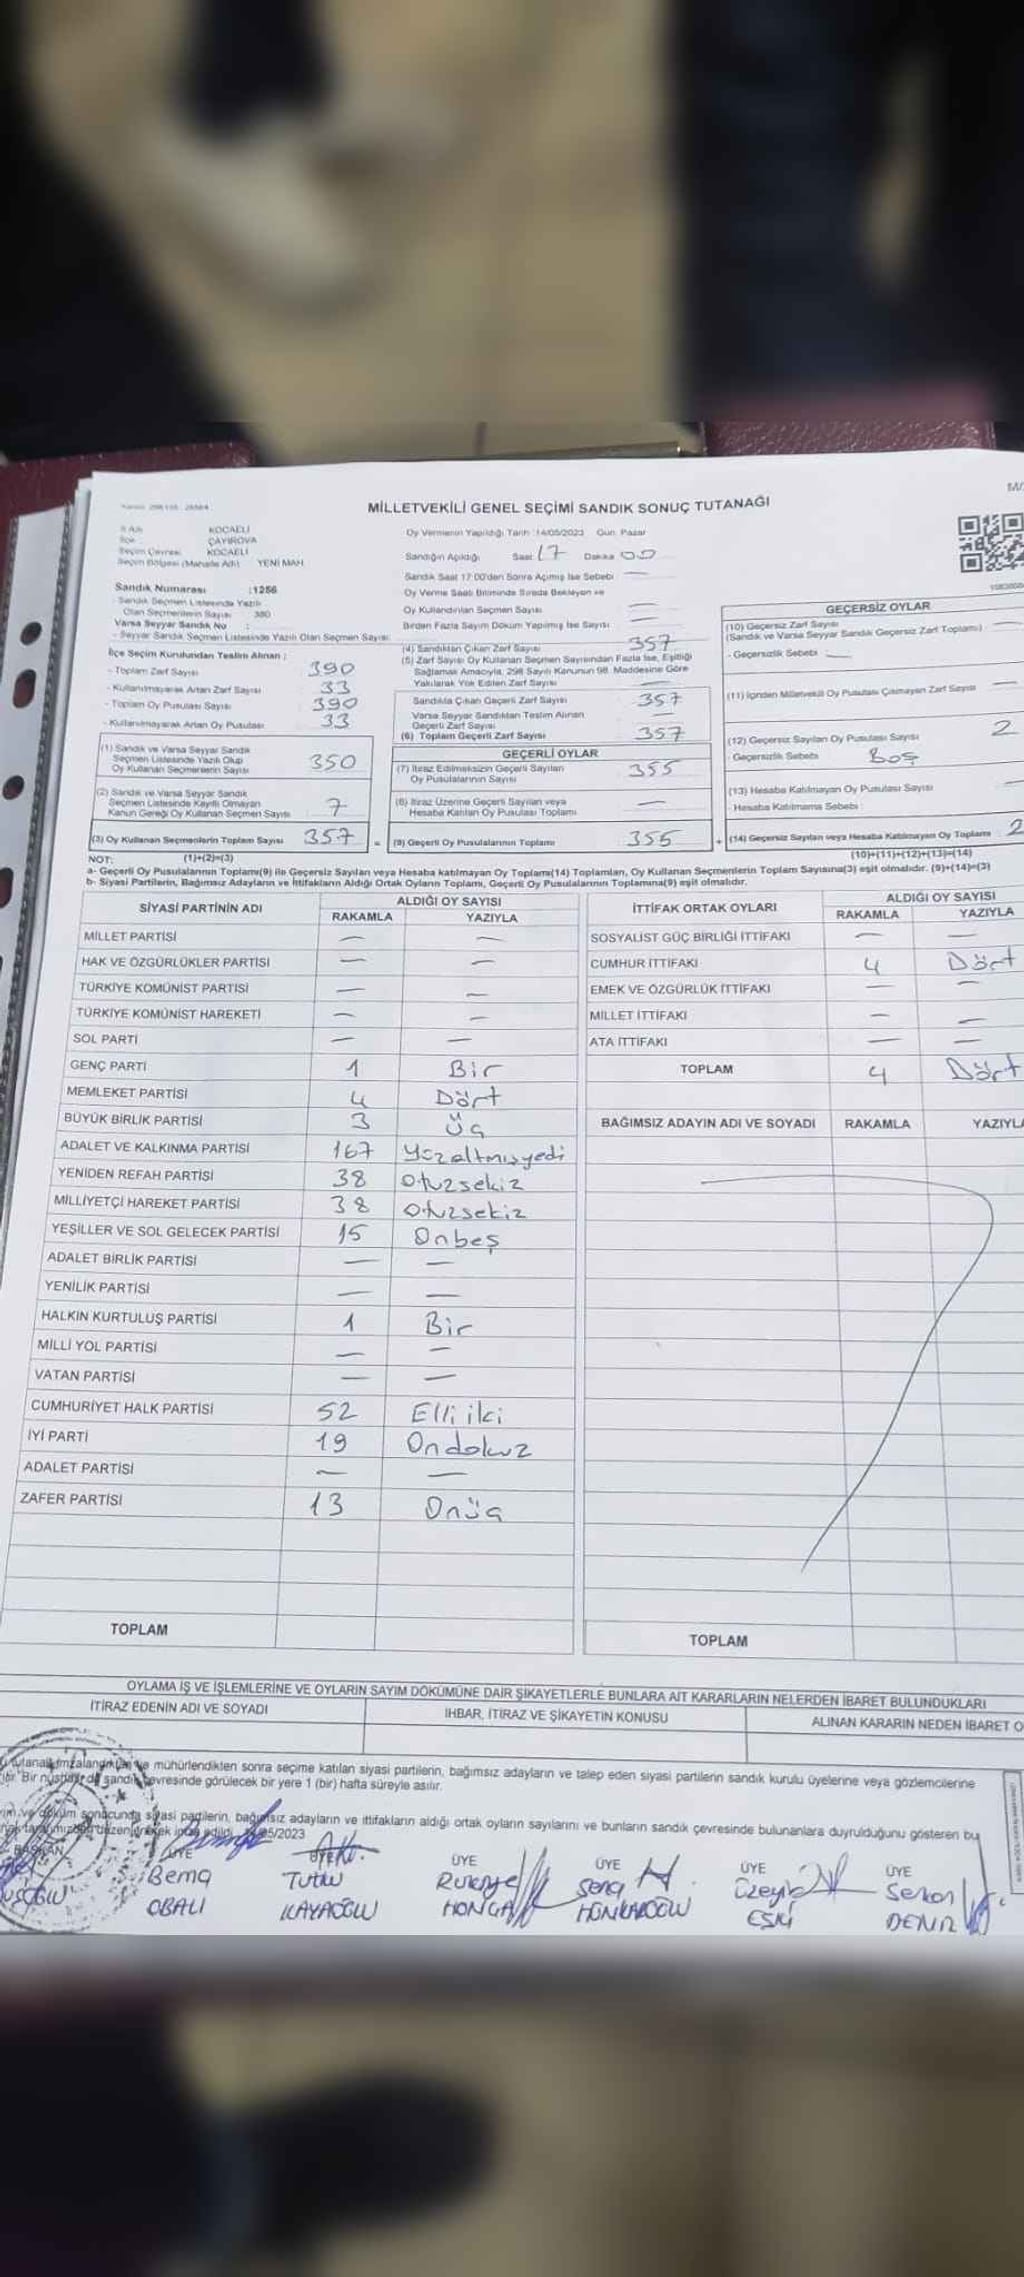 MİLLETVEKİLİ GENEL SEÇİMİ SANDIK SONUÇ TUTANAĞI
İl Adı KOCAELİ
İlçe ÇAYIROVA
Seçim Çevresi KOCAELİ
Seçim Bölgesi (Mahalle Adı) YENİ MAH.
Sandık Numarası :1256
Sandık Seçmen Listesinde Yazılı
Olan Seçmenlerin Sayısı 380
Varsa Seyyar Sandık No :
- Seyyar Sandık Seçmen Listesinde Yazılı Olan Seçmen Sayısı:
İlçe Seçim Kurulundan Teslim Alınan ;
- Toplam Zarf Sayısı 390
- Kullanılmayarak Artan Zarf Sayısı 33
- Toplam Oy Pusulası Sayısı 390
- Kullanılmayarak Artan Oy Pusulası 33
(1) Sandık ve Varsa Seyyar Sandık
Seçmen Listesinde Yazılı Olup
Oy Kullanan Seçmenlerin Sayısı 350
(2) Sandık ve Varsa Seyyar Sandık
Seçmen Listesinde Kayıtlı Olmayan
Kanun Gereği Oy Kullanan Seçmen Sayısı 7
(3) Oy Kullanan Seçmenlerin Toplam Sayısı 357 =
Oy Vermenin Yapıldığı Tarih :14/05/2023 Gün: Pazar
Sandığın Açıldığı Saat 17 Dakika 00
Sandık Saat 17:00'den Sonra Açılmış İse Sebebi —
Oy Verme Saati Bitiminde Sırada Bekleyen ve
Oy Kullandırılan Seçmen Sayısı —
Birden Fazla Sayım Döküm Yapılmış İse Sayısı —
(4) Sandıktan Çıkan Zarf Sayısı 357
(5) Zarf Sayısı Oy Kullanan Seçmen Sayısından Fazla İse, Eşitliği
Sağlamak Amacıyla, 298 Sayılı Kanunun 98. Maddesine Göre
Yakılarak Yok Edilen Zarf Sayısı —
Sandıkta Çıkan Geçerli Zarf Sayısı 357
Varsa Seyyar Sandıktan Teslim Alınan
Geçerli Zarf Sayısı —
(6) Toplam Geçerli Zarf Sayısı 357
GEÇERLİ OYLAR
(7) İtiraz Edilmeksizin Geçerli Sayılan
Oy Pusulalarının Sayısı 355
(8) İtiraz Üzerine Geçerli Sayılan veya
Hesaba Katılan Oy Pusulası Toplamı —
(9) Geçerli Oy Pusulalarının Toplamı 355 +
GEÇERSİZ OYLAR
(10) Geçersiz Zarf Sayısı
(Sandık ve Varsa Seyyar Sandık Geçersiz Zarf Toplamı) —
- Geçersizlik Sebebi : —
(11) İçinden Milletvekili Oy Pusulası Çıkmayan Zarf Sayısı —
(12) Geçersiz Sayılan Oy Pusulası Sayısı 2
Geçersizlik Sebebi : Boş
(13) Hesaba Katılmayan Oy Pusulası Sayısı —
- Hesaba Katılmama Sebebi :
(14) Geçersiz Sayılan veya Hesaba Katılmayan Oy Toplamı 2
NOT: (1)+(2)=(3) (10)+(11)+(12)+(13)=(14)
a- Geçerli Oy Pusulalarının Toplamı(9) ile Geçersiz Sayılan veya Hesaba katılmayan Oy Toplamı(14) Toplamları, Oy Kullanan Seçmenlerin Toplam Sayısına(3) eşit olmalıdır. (9)+(14)=(3)
b- Siyasi Partilerin, Bağımsız Adayların ve İttifakların Aldığı Ortak Oyların Toplamı, Geçerli Oy Pusulalarının Toplamına(9) eşit olmalıdır.
SİYASİ PARTİNİN ADI ALDIĞI OY SAYISI
RAKAMLA YAZIYLA
MİLLET PARTİSİ — —
HAK VE ÖZGÜRLÜKLER PARTİSİ — —
TÜRKİYE KOMÜNİST PARTİSİ — —
TÜRKİYE KOMÜNİST HAREKETİ — —
SOL PARTİ — —
GENÇ PARTİ 1 Bir
MEMLEKET PARTİSİ 4 Dört
BÜYÜK BİRLİK PARTİSİ 3 Üç
ADALET VE KALKINMA PARTİSİ 167 Yüzaltmışyedi
YENİDEN REFAH PARTİSİ 38 Otuzsekiz
MİLLİYETÇİ HAREKET PARTİSİ 38 Otuzsekiz
YEŞİLLER VE SOL GELECEK PARTİSİ 15 Onbeş
ADALET BİRLİK PARTİSİ — —
YENİLİK PARTİSİ — —
HALKIN KURTULUŞ PARTİSİ 1 Bir
MİLLİ YOL PARTİSİ — —
VATAN PARTİSİ — —
CUMHURİYET HALK PARTİSİ 52 Elli iki
İYİ PARTİ 19 Ondokuz
ADALET PARTİSİ — —
ZAFER PARTİSİ 13 Onüç
TOPLAM
İTTİFAK ORTAK OYLARI ALDIĞI OY SAYISI
RAKAMLA YAZIYLA
SOSYALİST GÜÇ BİRLİĞİ İTTİFAKI — —
CUMHUR İTTİFAKI 4 Dört
EMEK VE ÖZGÜRLÜK İTTİFAKI — —
MİLLET İTTİFAKI — —
ATA İTTİFAKI — —
TOPLAM 4 Dört
BAĞIMSIZ ADAYIN ADI VE SOYADI RAKAMLA YAZIYLA
TOPLAM
OYLAMA İŞ VE İŞLEMLERİNE VE OYLARIN SAYIM DÖKÜMÜNE DAİR ŞİKAYETLERLE BUNLARA AİT KARARLARIN NELERDEN İBARET BULUNDUKLARI
İTİRAZ EDENİN ADI VE SOYADI İHBAR, İTİRAZ VE ŞİKAYETİN KONUSU ALINAN KARARIN NEDEN İBARET O
mühürlendikten sonra seçime katılan siyasi partilerin, bağımsız adayların ve talep eden siyasi partilerin sandık kurulu üyelerine veya gözlemcilerine
Bir nüshası da sandık çevresinde görülecek bir yere 1 (bir) hafta süreyle asılır.
ve döküm sonucunda siyasi partilerin, bağımsız adayların ve ittifakların aldığı ortak oyların sayılarını ve bunların sandık çevresinde bulunanlara duyrulduğunu gösteren bu
BAŞKAN ÜYE ÜYE ÜYE ÜYE ÜYE ÜYE
Berna Tutku Rukiye Sena Üzeyir Serkan
OBALI KAYAOĞLU HONCA HÜNKAROĞLU ESKİ DENİZ